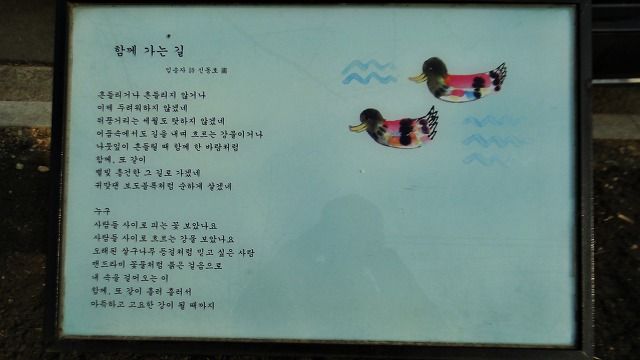 함께 가는 길
임승자 詩 신동호 畵
흔들리거나 흔들리지 않거나
이제 두려워하지 않겠네
뒤뚱거리는 세월도 탓하지 않겠네
어둠속에서도 길을 내며 흐르는 강물이거나
나뭇잎이 흔들릴 때 함께 한 바람처럼
함께, 또 같이
별빛 흥건한 그 길로 가겠네
귀맞댄 보도블록처럼 순하게 살겠네
누구
사람들 사이로 피는 꽃 보았나요
사람들 사이로 흐르는 강물 보았나요
오래된 살구나무 등걸처럼 믿고 싶은 사람
맨드라미 꽃물처럼 붉은 걸음으로
내 속을 걸어오는 이
함께, 또 같이 흘러 흘러서
아득하고 고요한 강이 될 때까지